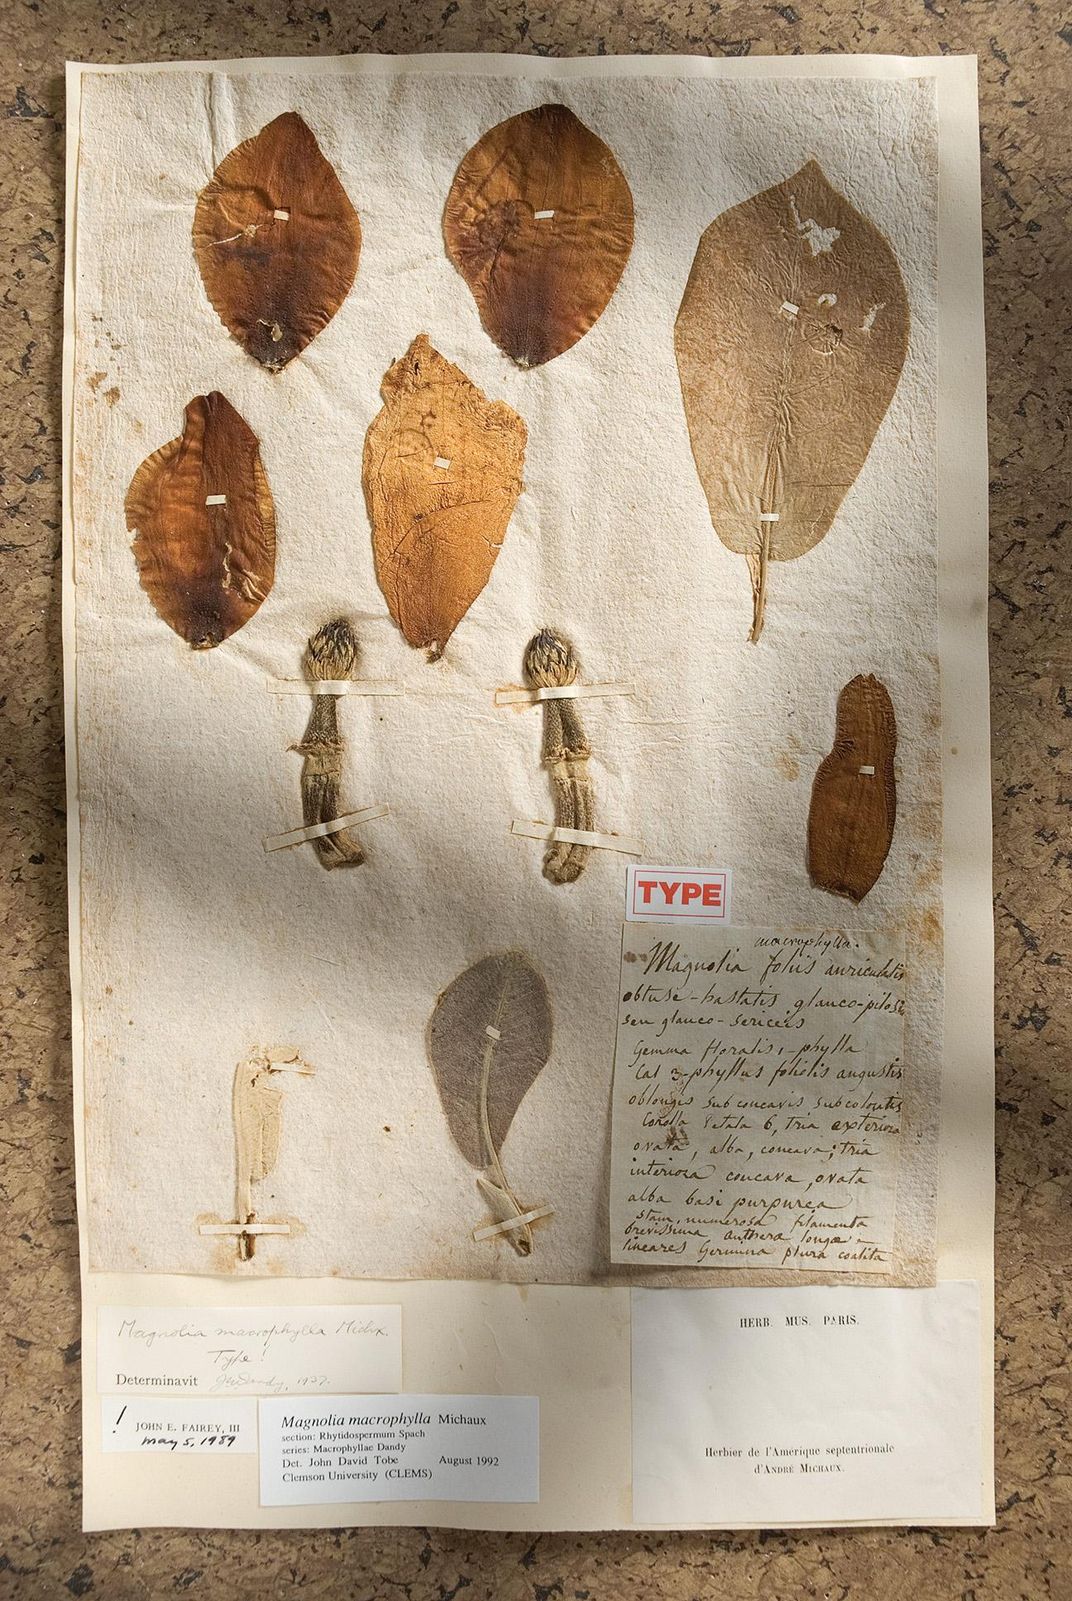 TYPE
macrophylla.
Magnolia foliis auriculatis
obtuse-hastatis glauco-pilosis
seu glauco-sericeis
Gemma floralis 1-phylla
Cal 3-phyllus foliolis angustis
oblongis subconcavis subcoloratis
Corolla Petala 6, tria exteriora
ovata, alba, concava; tria
interiora concava, ovata
alba basi purpurea
Stam. numerosa filamenta
brevissima, anthera longæ
lineares Germina plura coalita
HERB. MUS. PARIS.
Herbier de l'Amérique septentrionale
d'ANDRÉ MICHAUX.
Magnolia macrophylla Michx.
Type!
Determinavit JEDandy, 1927.
! JOHN E. FAIREY, III
May 5, 1989
Magnolia macrophylla Michaux
section: Rhytidospermum Spach
series: Macrophyllae Dandy
Det. John David Tobe August 1992
Clemson University (CLEMS)